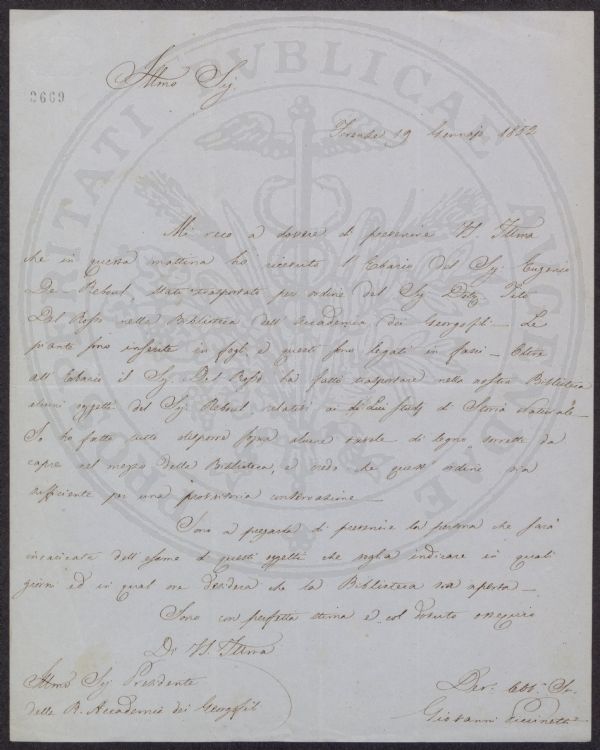 Illmo Sig.
2669
Firenze 19 Gennajo 1852
Mi reco a dovere di prevenire V. S. Illma
che in questa mattina ho ricevuto l'Erbario del Sig. Eugenio
De Reboul, stato trasportato per ordine del Sig. Dott. Tito
Del Rosso nella Biblioteca dell'Accademia dei Georgofili — Le
piante sono inserite in fogli, e questi sono legati in fasci — Oltre
all'Erbario il Sig. Del Rosso ha fatto trasportare nella nostra Biblioteca
alcuni oggetti del Sig. Reboul relativi ai di Lui studj di Storia Naturale —
Io ho fatto tutto disporre sopra alcune tavole di legno sorrette da
capre nel mezzo della Biblioteca, e credo che quest'ordine sia
sufficiente per una provvisoria conservazione —
Sono a pregarla di prevenire la persona che sarà
incaricata dell'esame di questi oggetti che voglia indicare in quali
giorni ed in qual ora desidera che la Biblioteca sia aperta —
Sono con perfetta stima e col dovuto ossequio
Di V. S. Illma
Illmo Sig. Presidente
della R. Accademia dei Georgofili
Dev. Obb. Se.
Giovanni
PROSPERITATI PUBLICAE AUGENDAE